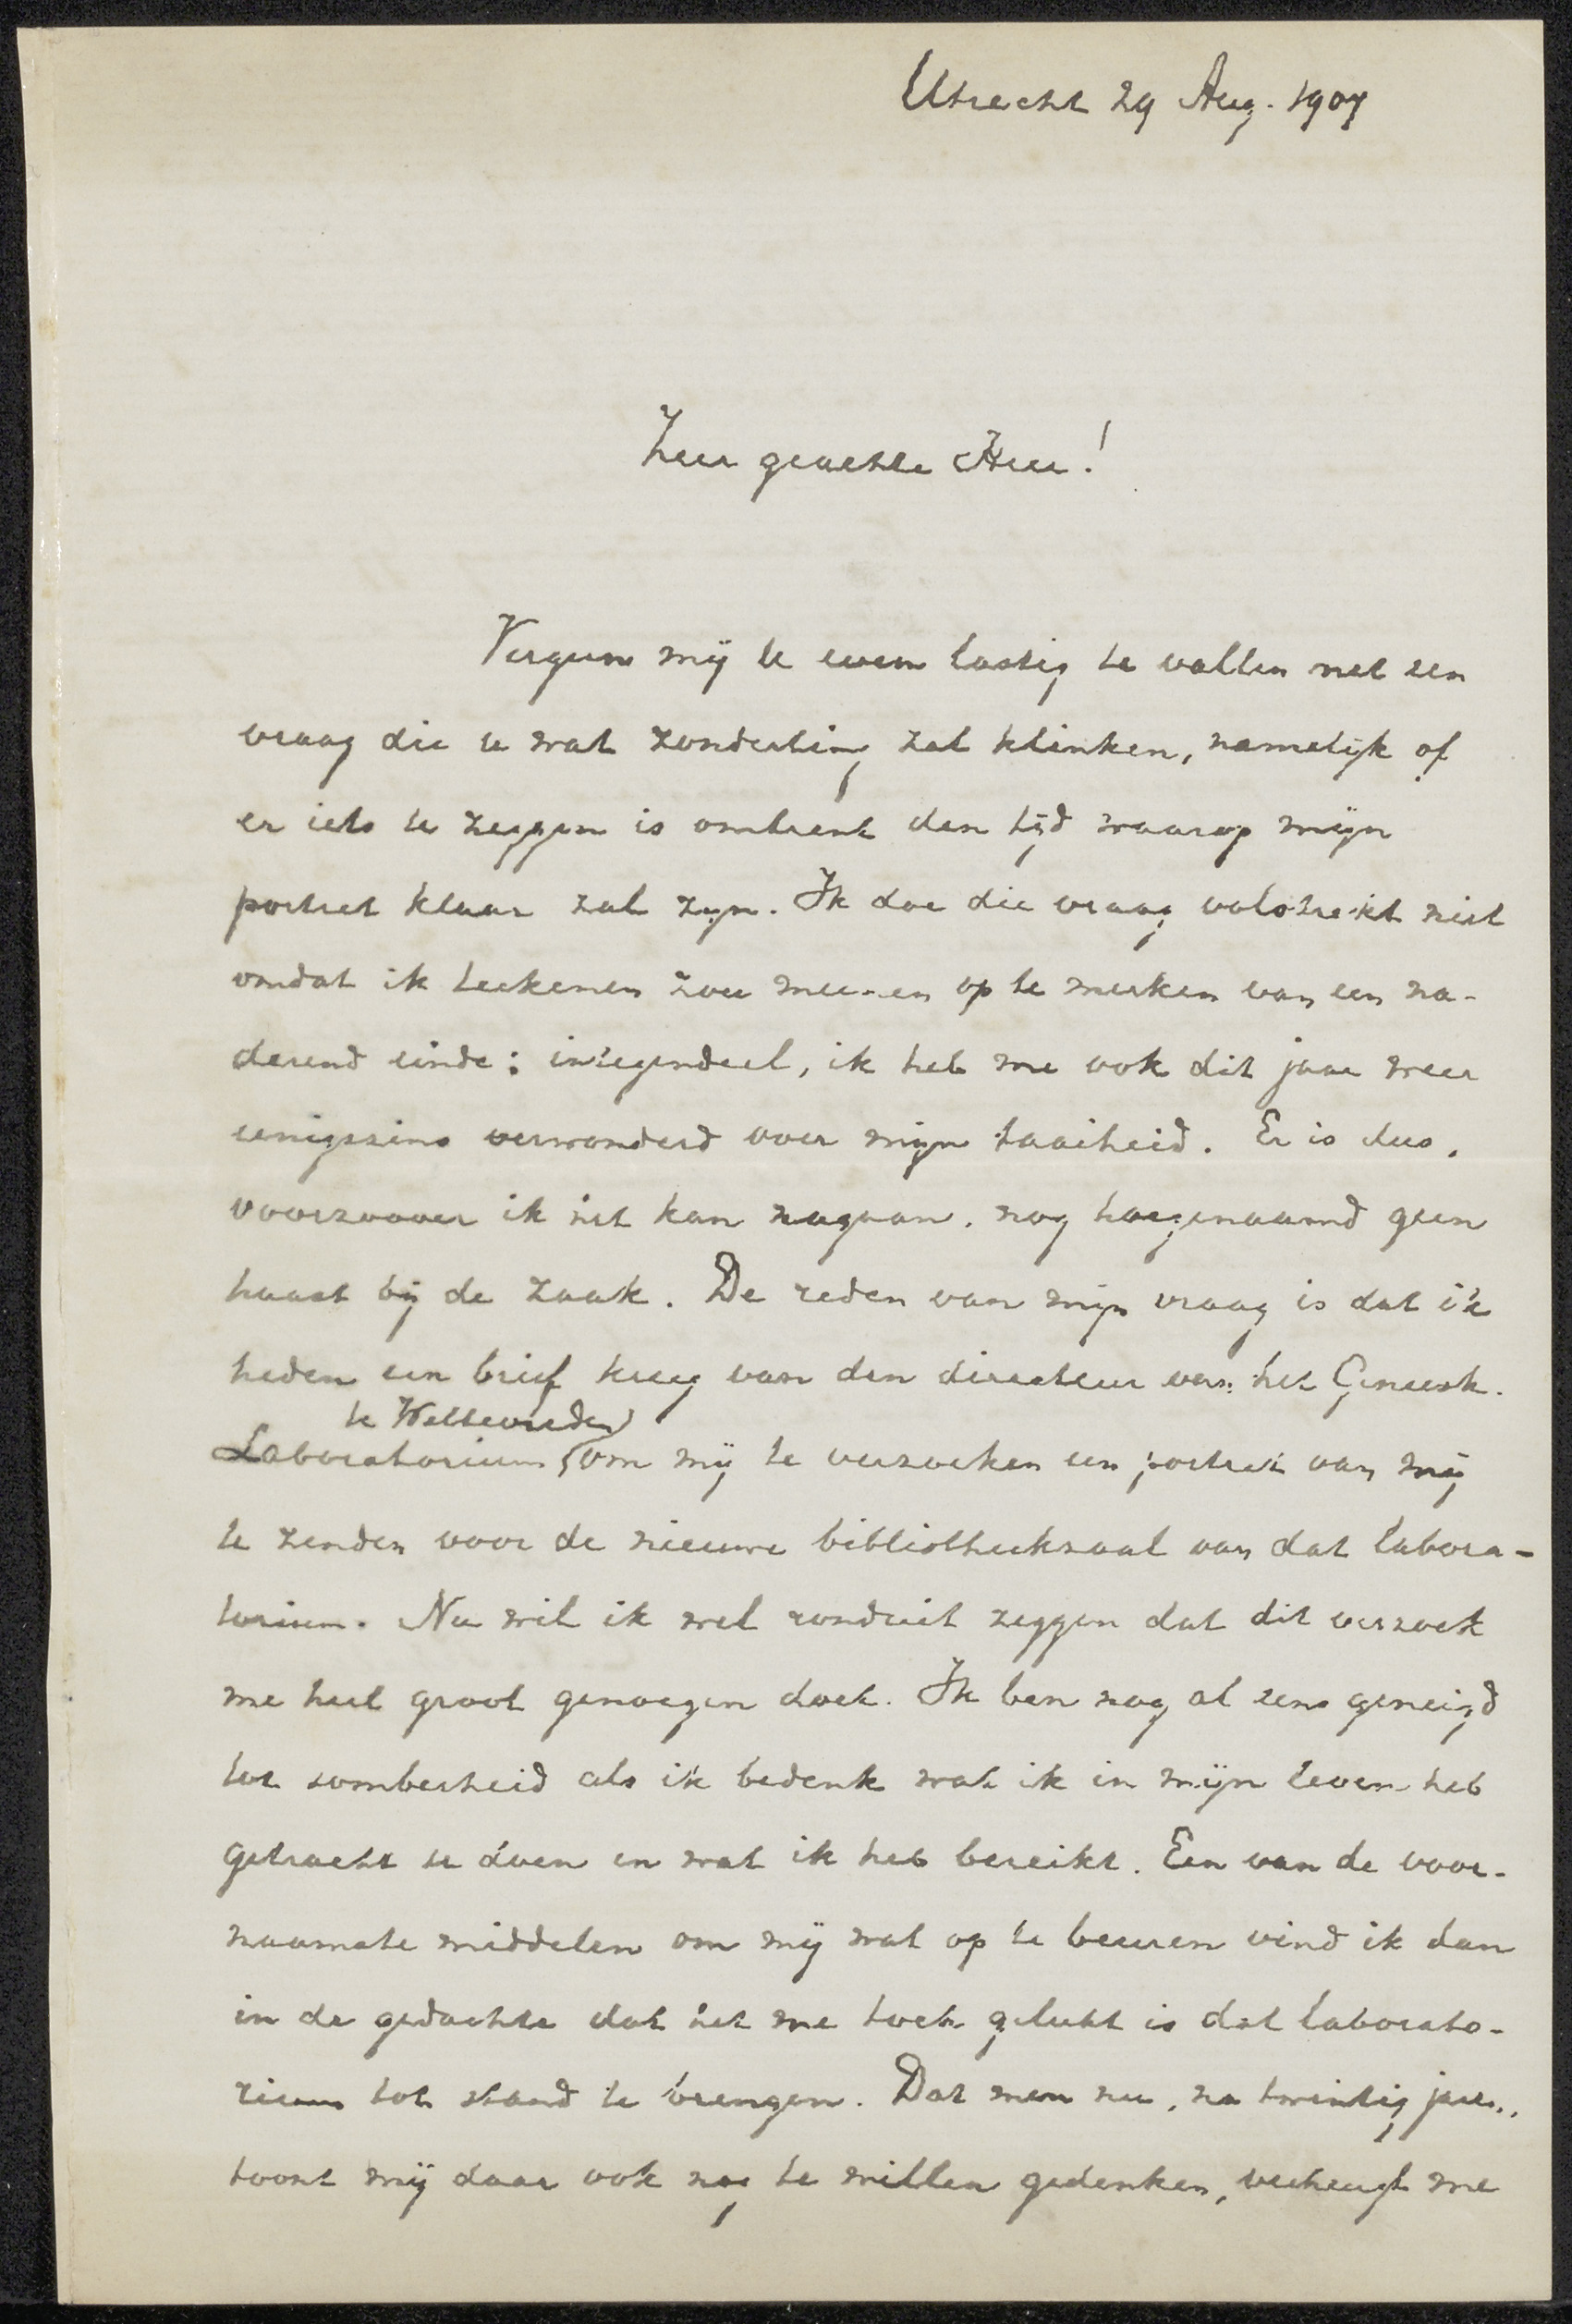 Utrecht 29 Aug. 1907
Zeer geachte Heer!
Vergun mij U even lastig te vallen met een
vraag die U wat zonderling zal klinken, namelijk of
er iets te zeggen is omtrent den tijd waarop mijn
portret klaar zal zijn. Ik doe die vraag volstrekt niet
omdat ik teekenen zou meenen op te merken van een na-
derend einde: integendeel, ik heb me ook dit jaar weer
eenigszins verwonderd over mijn taaiheid. Er is dus,
voorzoover ik het kan nagaan, nog hoegenaamd geen
haast bij de zaak. De reden van mijn vraag is dat ik
heden een brief kreeg van den directeur van het Geneesk.
te Weltevreden
Laboratorium om mij te verzoeken een portret van mij
te zenden voor de nieuwe bibliotheekzaal van dat labora-
torium. Nu wil ik wel ronduit zeggen dat dit verzoek
me heel groot genoegen doet. Ik ben nog al eens geneigd
tot somberheid als ik bedenk wat ik in mijn leven heb
getracht te doen en wat ik heb bereikt. Een van de voor-
naamste middelen om mij wat op te beuren vind ik dan
in de gedachte dat het me toch gelukt is dat laborato-
rium tot stand te brengen. Dat men nu, na twintig jaar,
toont mij daar ook nog te willen gedenken, verheugt me